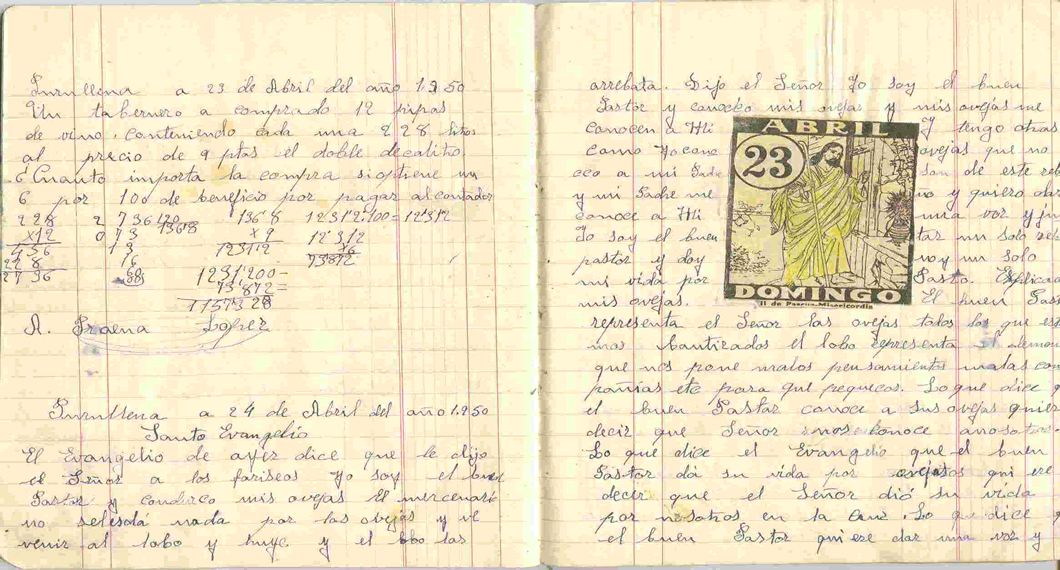 Purullena a 23 de Abril del año 1.950
Un tabernero a comprado 12 pipas
de vino. conteniendo cada una 228 litros
al precio de 9 ptas el doble decalitro.
¿Cuanto importa la compra si optiene un
6 por 100 de beneficio por pagar al contador
228 2736 20 136'8 1231'2:100=12'312
x12 073 136'8 x9 12'312
456 13 1231'2 x6
228 16 73'872
2736 1231'200-
73'872=
1157'328
A. Praena Lopez
Purullena a 24 de Abril del año 1.950
Santo Evangelio
El Evangelio de ayer dice que le dijo
el Señor a los fariseos Yo soy el buen
Pastor y conozco mis ovejas El mercenario
no se le dá nada por las ovejas y ve
venir al lobo y huye. y el lobo las
arrebata. Dijo el Señor Yo soy el buen
Pastor y conozco mis ovejas y mis ovejas me
conocen a Mi Y tengo otras
como Yo cono ovejas que no
zco a mi Padre son de este reb
y mi Padre me y quiero
conoce a Mi una voz y
Yo soy el buen un solo reb
pastor y doy y un solo
mi vida por Pasto. Explicac
mis ovejas. El buen Past
ABRIL
23
DOMINGO
II de Pascua-Misericordia
representa el Señor las ovejas todos los que est
mos bautizados el lobo representa el demon
que nos pone malos pensamientos malas com
pañias etc para que pequeos. Lo que dice q
el buen Pastor conoce a sus ovejas quier
decir que Señor nos conoce a nosotros.
Lo que dice el Evangelio que el buen
Pastor da su vida por ovejas qui ere
decir que el Señor dió su vida
por nosotros en la Cruz. Lo que dice q
el buen Pastor qui ere dar una voz y